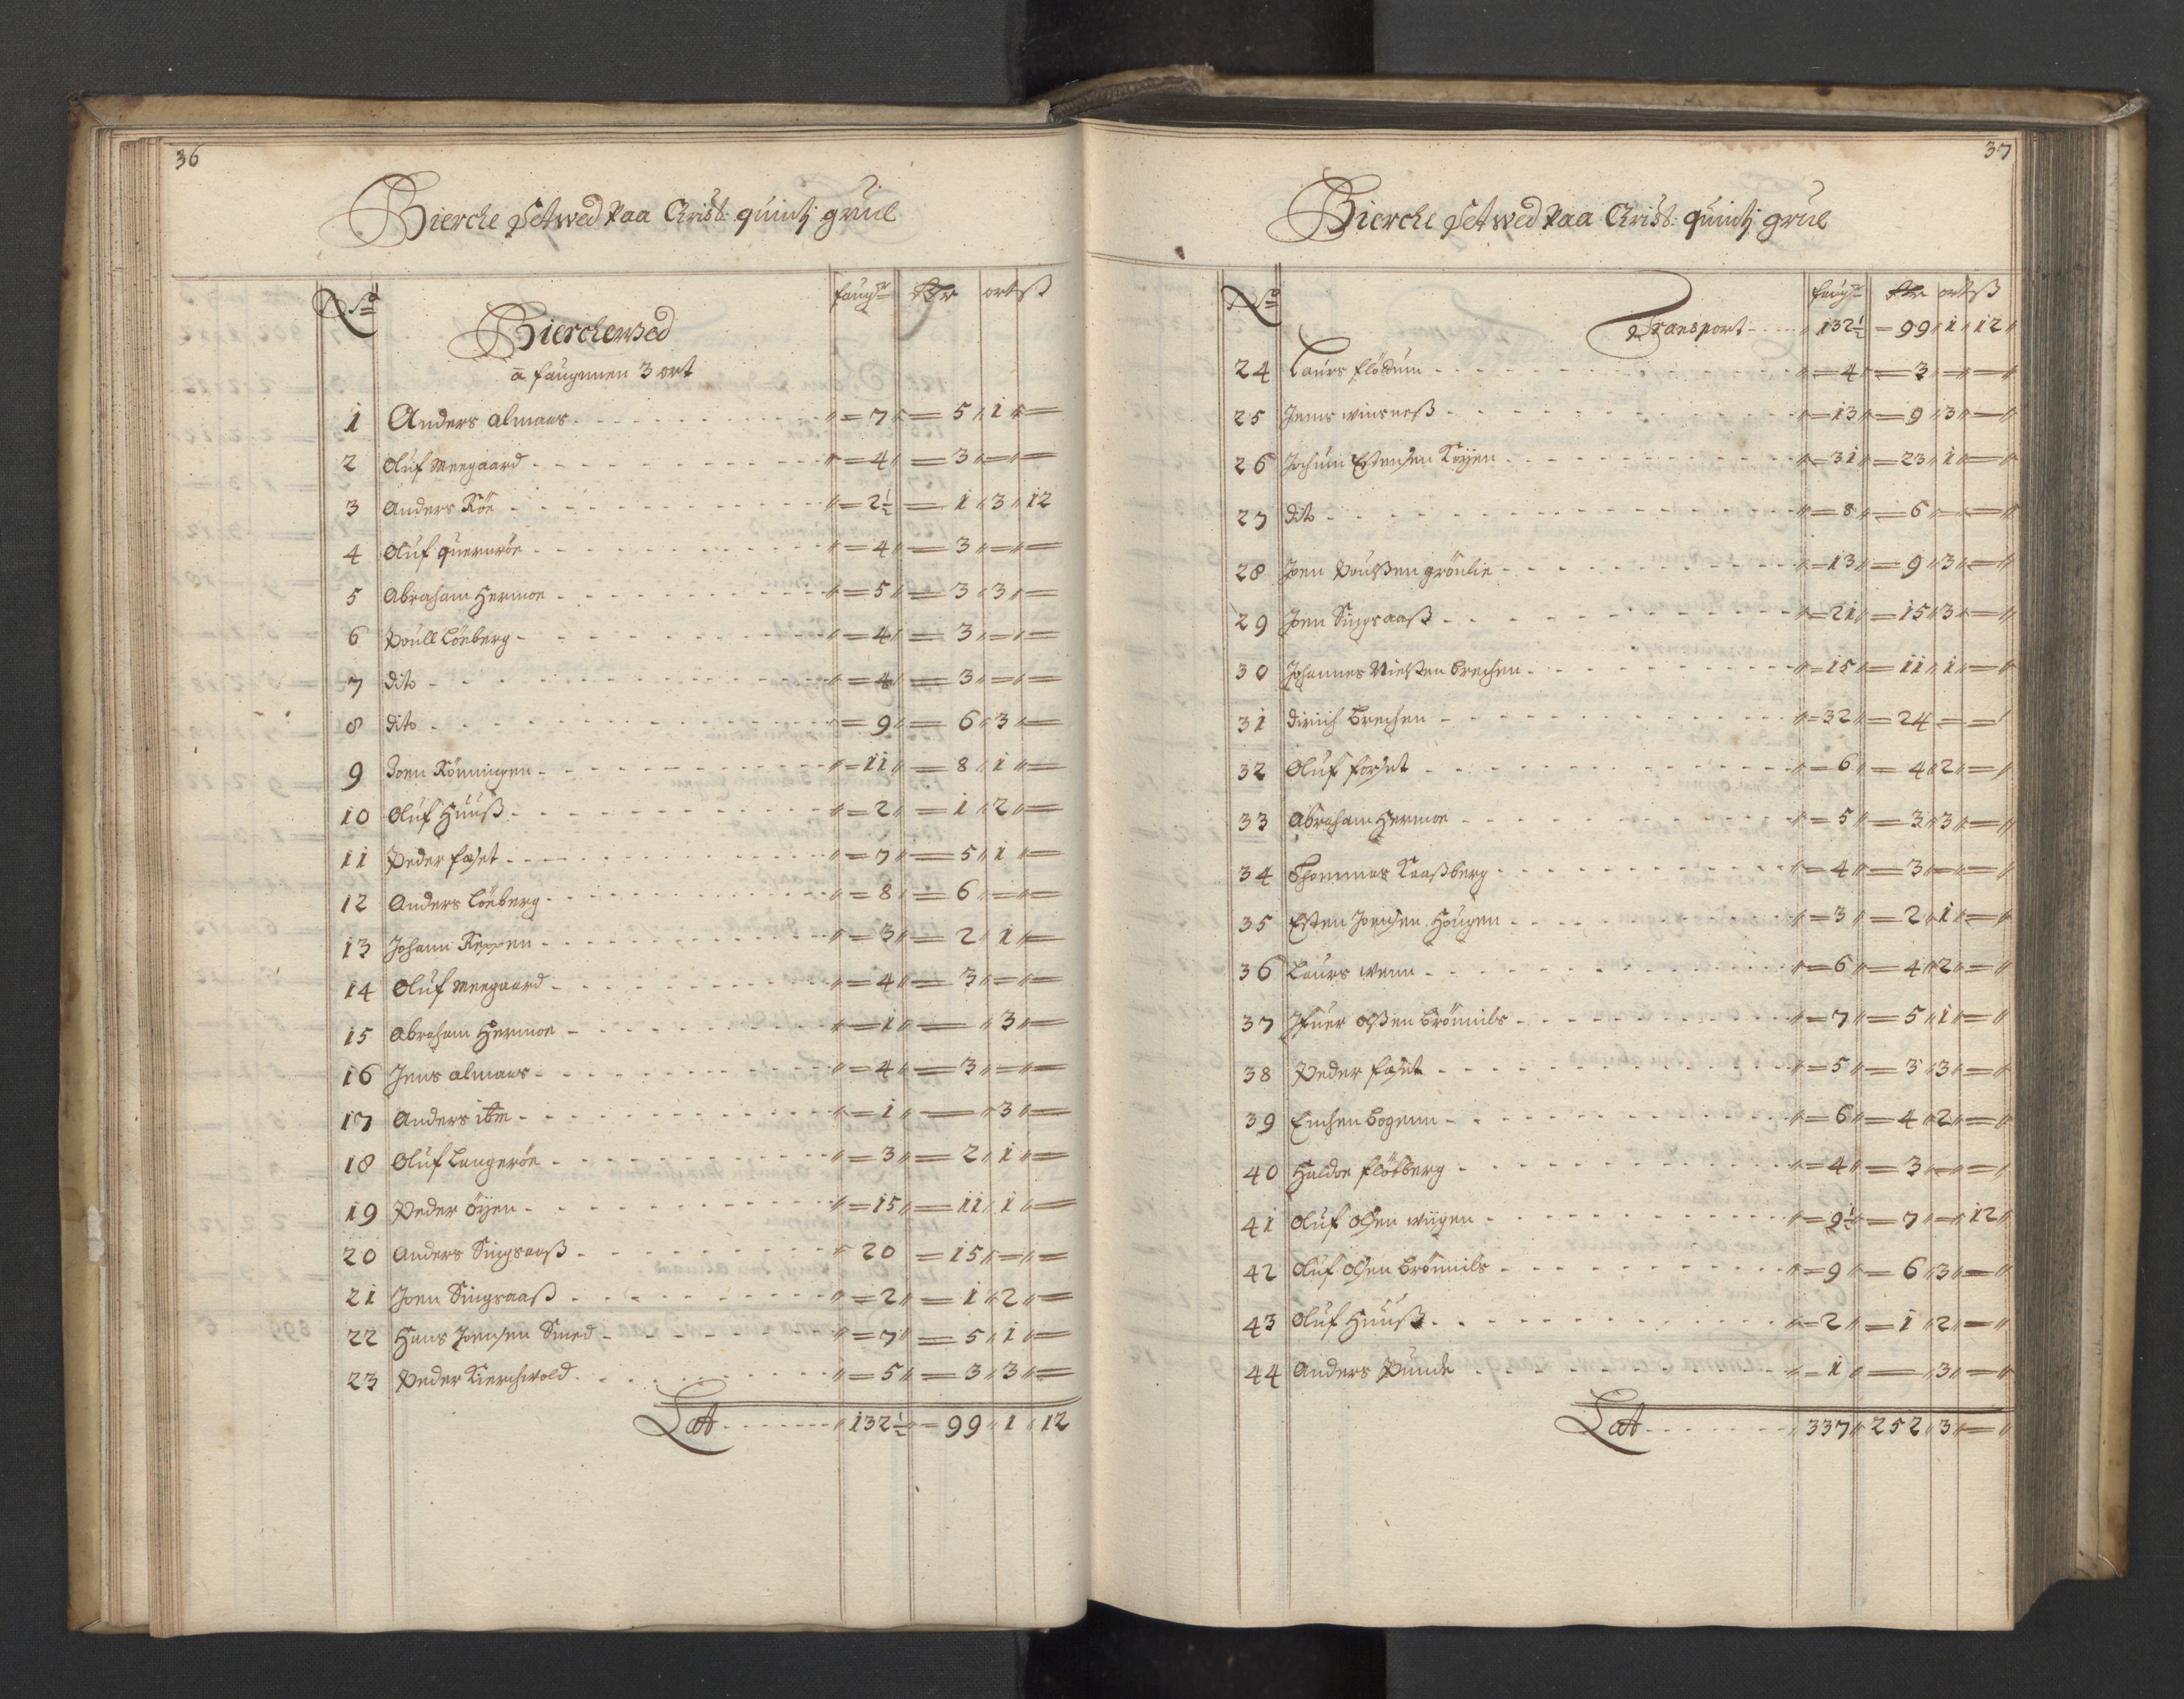 36
Bierche Setwed Paa Christ: quintj grue
No Faugr Rdr ort ß
Bierchewed
a faugnuen 3 ort
1 Anders Almaas 7 5 1
2 Oluf Meegaard 4 3
3 Anders Röe 2½ 1 3 12
4 Oluf quernröe 4 3
5 Abraham Hermoe 5 3 3
6 Poull Löeberg 4 3
7 dito 4 3
8 dito 9 6 3
9 Joen Rönningen 11 8 1
10 Oluf Huuß 2 1 2
11 Peder faset 7 5 1
12 Anders Löeberg 8 6
13 Johann Reppen 3 2 1
14 Oluf Meegaard 4 3
15 Abraham Hermoe 1 3
16 Jens Almaas 4 3
17 Anders itm 1 3
18 Oluf Langeröe 3 2 1
19 Peder Öyen 15 11 1
20 Anders Singsaaß 20 15
21 Joen Singsaaß 2 1 2
22 Hans Joensen Smed 7 5 1
23 Peder Kierchwold 5 3 3
Lat 132½ 99 1 12
37
Bierche Setwed Paa Christ: quintj grue
No Faugr Rdr ort ß
Transport 132½ 99 1 12
24 Laurs flödum 4 3
25 Jens winsneß 13 9 3
26 Jochum Estensen Köyen 31 23 1
27 dito 8 6
28 Joen Poulßen grönlie 13 9 3
29 Joen Singsaaß 21 15 3
30 Johannes Nielßen Brechen 15 11 1
31 Dirich Brechen 32 24
32 Oluf forset 6 4 2
33 Abraham Hermoe 5 3 3
34 Thommas Kaaßberg 4 3
35 Esten Joensen Hougen 3 2 1
36 Laurs wenn 6 4 2
37 Jfuer Olßen Brömils 7 5 1
38 Peder faset 5 3 3
39 Enchen Bogenn 6 4 2
40 Haldoe flötberg 4 3
41 Oluf Olsen wiigen 9½ 7 12
42 Oluf Olsen Brömils 9 6 3
43 Oluf Huuß 2 1 2
44 Anders Punde 1 3
Lat 337 252 3